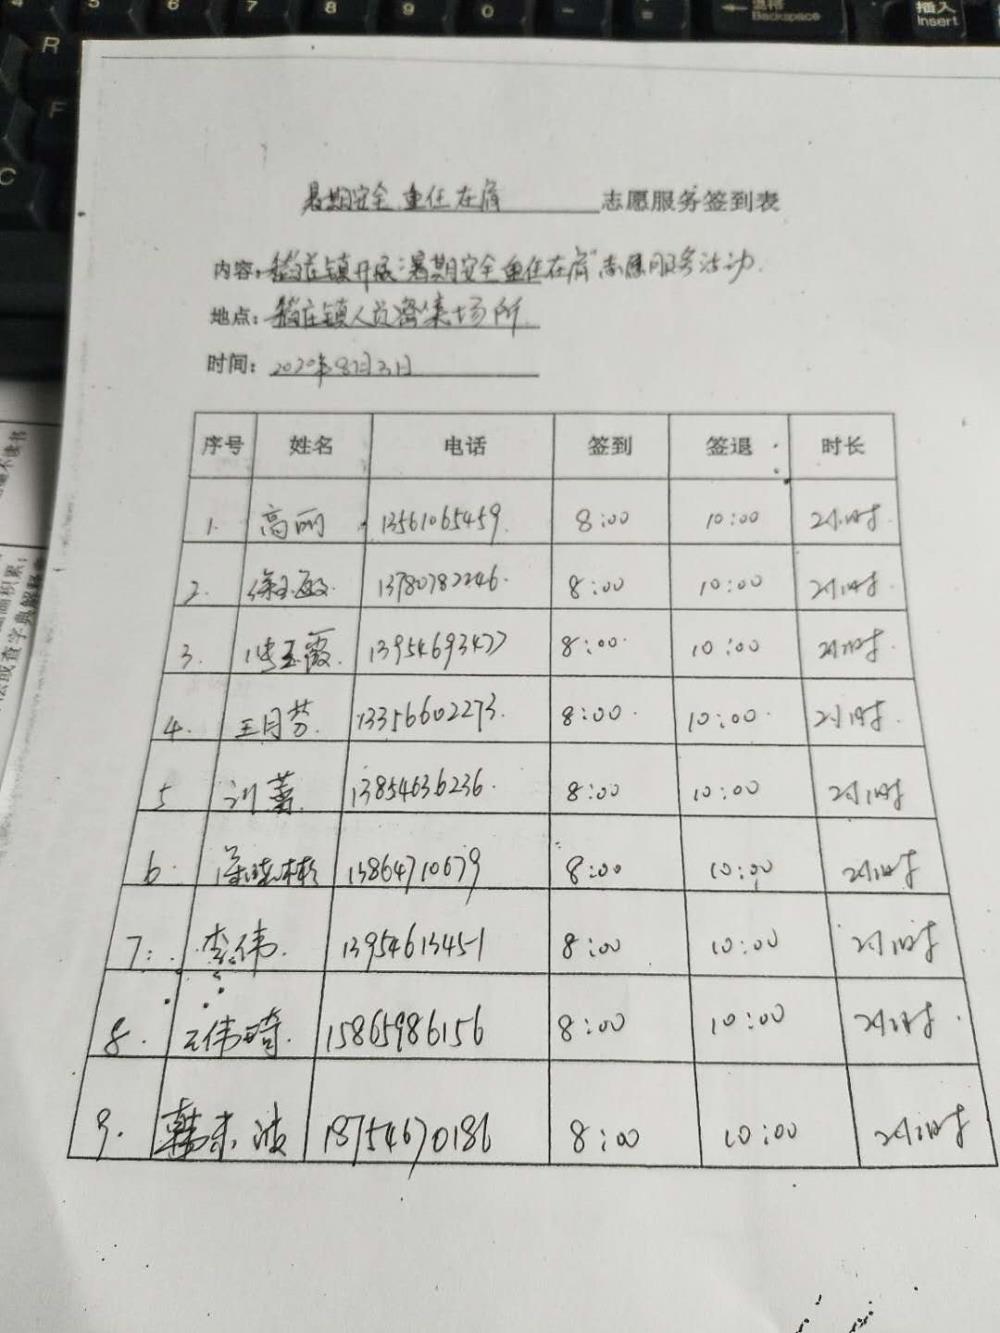 4 5 6 7 8 9 0 - =
Backspace
插入
Insert
R
F
C
暑期安全 重任在肩 志愿服务签到表
内容: 稻庄镇开展"暑期安全重任在肩"志愿服务活动.
地点: 稻庄镇人员密集场所.
时间: 2020年8月21日
序号 姓名 电话 签到 签退 时长
1. 高丽 13561065459. 8:00 10:00 2小时.
2. 徐玉敏. 13780782246. 8:00 10:00 2小时.
3. 玉霞. 13954693477 8:00 10:00 2小时.
4. 王月芬. 13356602273. 8:00. 10:00. 2小时.
5 刘 13854636236. 8:00 10:00 2小时
6. 晓彬 13864710679 8:00 10:00 2小时
7. 李伟. 13954613451 8:00 10:00 2小时
8. 王伟琦. 15865986156 8:00 10:00 2小时.
9. 韩波 18754670186 8:00 10:00 2小时
或查字典解释